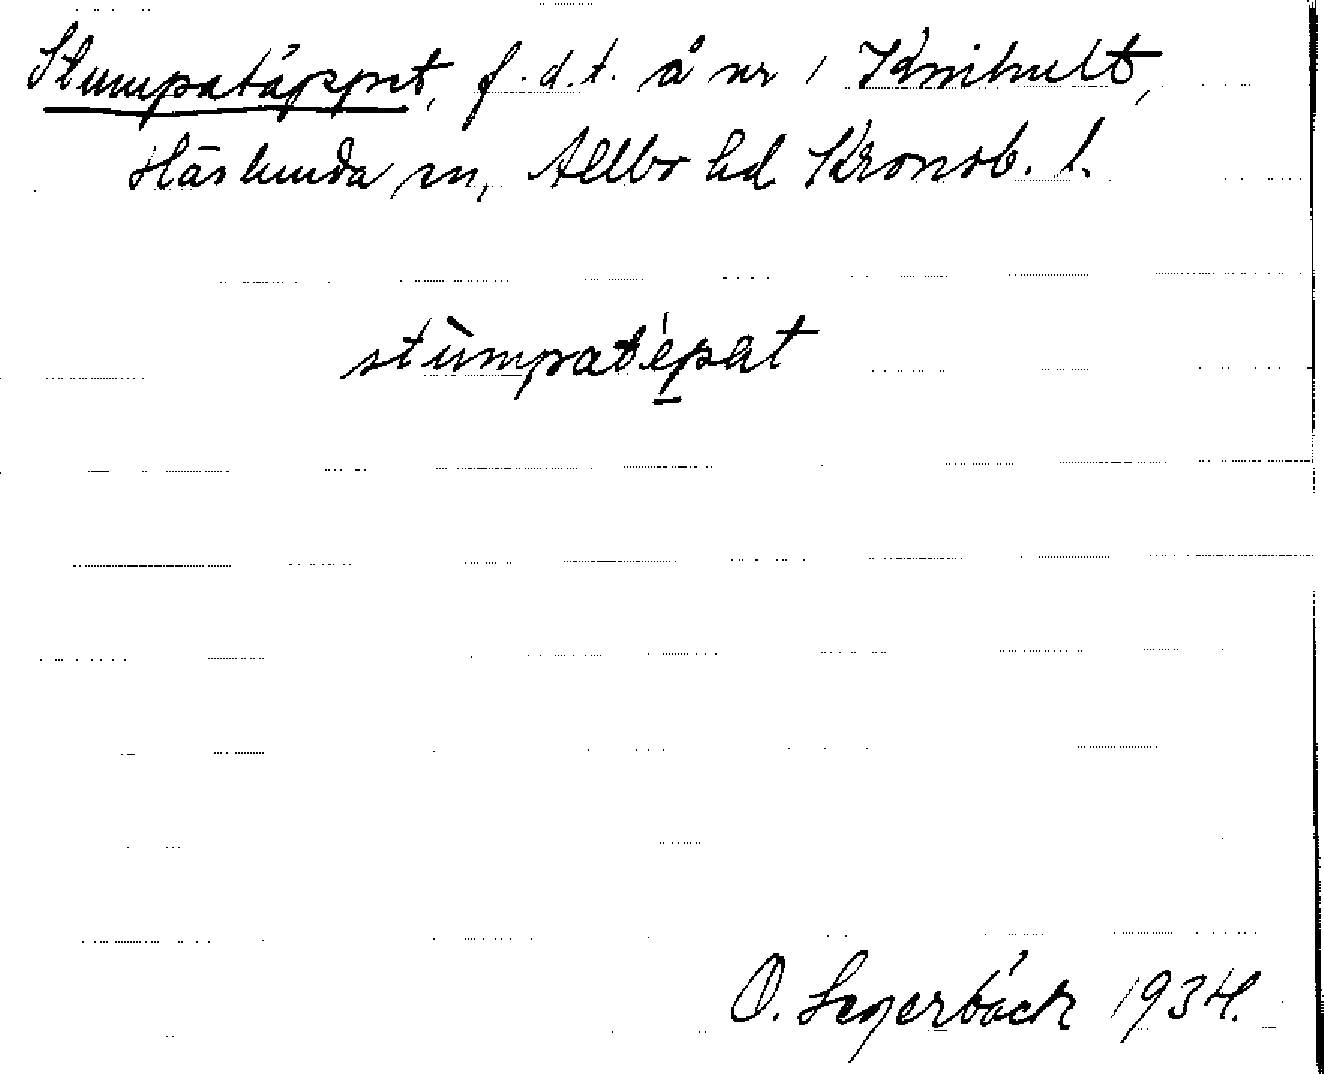 Stumpatäppet, f.d.t. å nr 1 Knihult,
Härlunda sn, Allbo hd Kronob. l.
stùmpatépət
O. Segerbäck 1934.